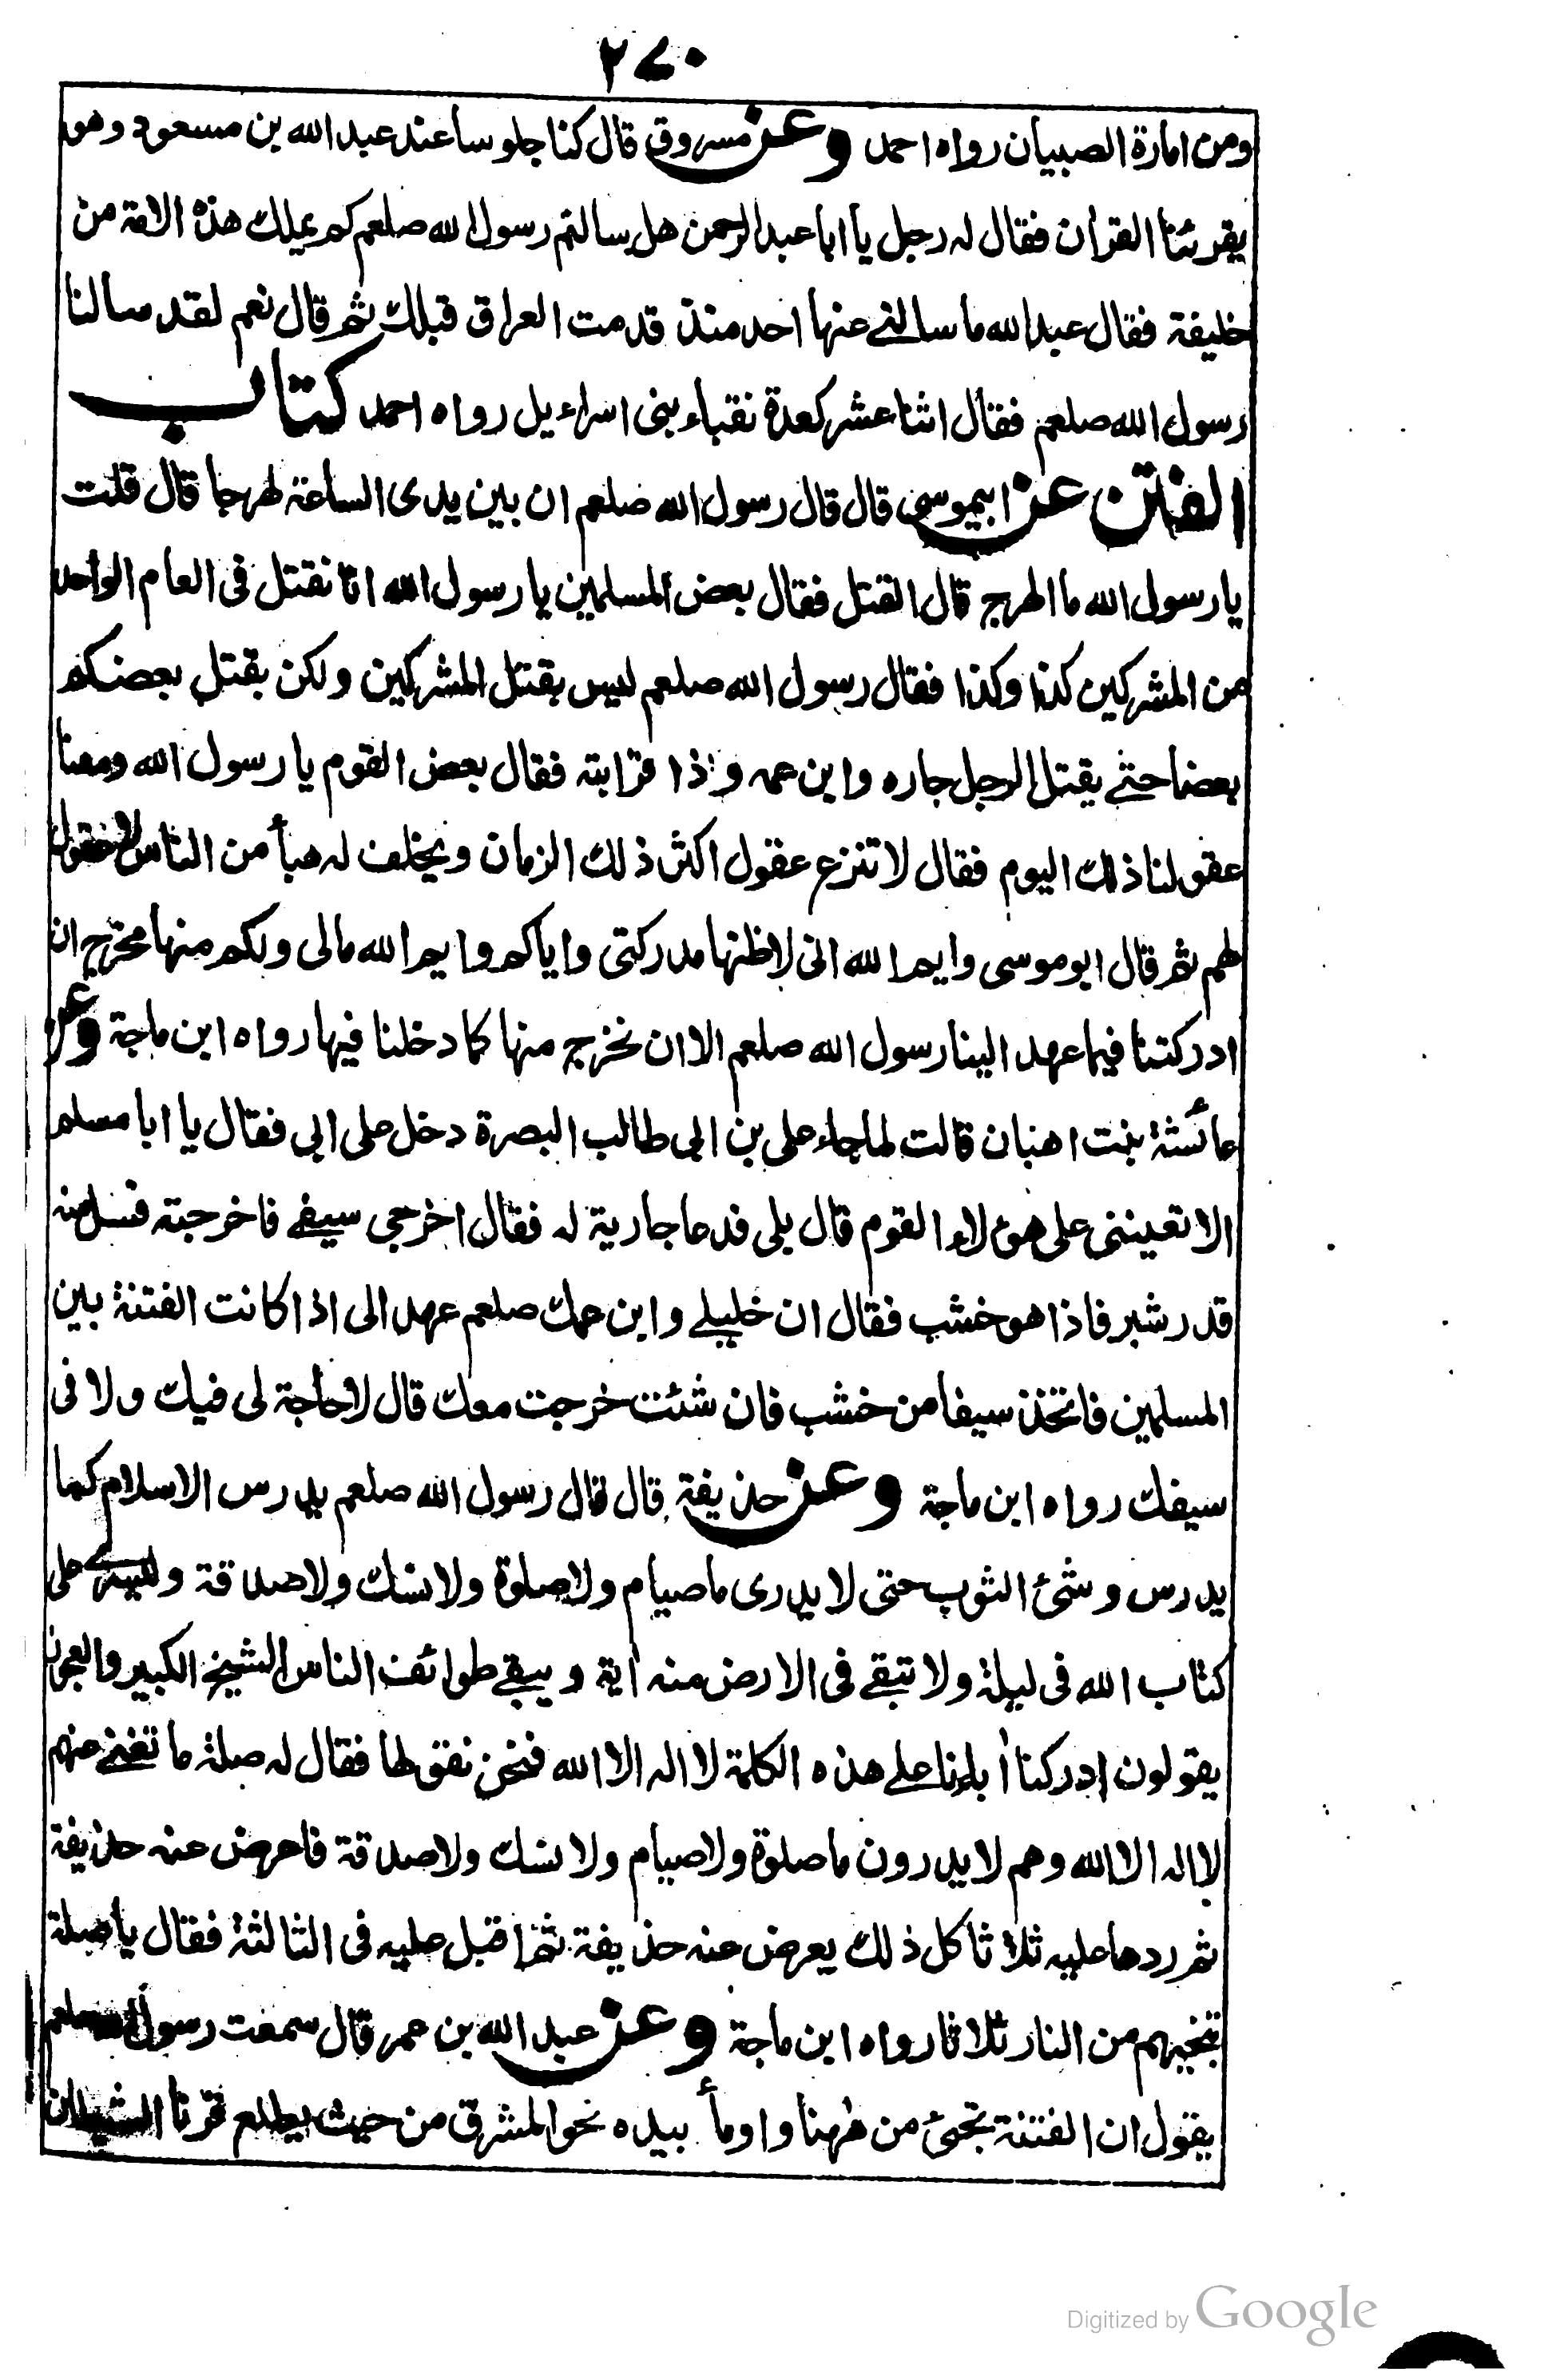 ٢٧٠
ومن امارة الصبيان رواه احمد وعن مسروق قال كنا جلوسا عند عبد الله بن مسعود وهو
يقرئنا القرأن فقال له رجل يا ابا عبد الرحمن هل سالتم رسول الله صلعم كم يملك هذه الامة من
خليفة فقال عبد الله ما سالني عنها احد منذ قدمت العراق قبلك ثم قال نعم لقد سالنا
رسول الله صلعم فقال اثنا عشر كعدة نقباء بنى اسراءيل رواه احمد كتاب
الفتن عن ابيموسى قال قال رسول الله صلعم ان بين يدى الساعة لهرجا قال قلت
يا رسول الله ما الهرج قال القتل فقال بعض المسلمين يا رسول الله انا نقتل فى العام الواحد
من المشركين كذا وكذا فقال رسول الله صلعم ليس بقتل المشركين ولكن بقتل بعضكم
بعضا حتى يقتل الرجل جاره وابن عمه وذا قرابته فقال بعض القوم يا رسول الله ومعنا
عقولنا ذلك اليوم فقال لا تنزع عقول اكثر ذلك الزمان ويخلف له هبأ من الناس لا عقول
لهم ثم قال ابو موسى وايم الله انى لاظنها مدركتى واياكم وايم الله مالى ولكم منها مخرج ان
ادركتنا فيما عهد الينا رسول الله صلعم الا ان نخرج منها كما دخلنا فيها رواه ابن ماجة وعن
عائشة بنت اهبان قالت لما جاء على بن ابى طالب البصرة دخل على ابى فقال يا ابا مسلم
الا تعيننى على هؤلاء القوم قال بلى فدعا جارية له فقال اخرجى سيفى فاخرجته فسل منه
قدر شبر فاذا هو خشب فقال ان خليلى وابن عمك صلعم عهد الى اذا كانت الفتنة بين
المسلمين فاتخذ سيفا من خشب فان شئت خرجت معك قال لا حاجة لى فيك ولا فى
سيفك رواه ابن ماجة وعن حذيفة قال قال رسول الله صلعم يدرس الاسلام كما
يدرس وشئ الثوب حتى لا يدرى ما صيام ولا صلوة ولا نسك ولا صداقة وليسرى على
كتاب الله فى ليلة ولا تبقى فى الارض منه أية ويبقى طوائف الناس الشيخ الكبير والعجوز
يقولون ادركنا أباءنا على هذه الكلمة لا اله الا الله فنحن نقولها فقال له صلة ما تغنى عنهم
لا اله الا الله وهم لا يدرون ما صلوة ولا صيام ولا نسك ولا صدقة فاعرض عنه حذيفة
ثم ردها عليه ثلاثا كل ذلك يعرض عنه حذيفة ثم اقبل عليه فى الثالثة فقال يا صلة
تنجيهم من النار ثلاثا رواه ابن ماجة وعن عبد الله بن عمر قال سمعت رسول الله صلعم
يقول ان الفتنة تجئ من ههنا واومأ بيده نحو المشرق من حيث يطلع قرنا الشيطان
Digitized by Google